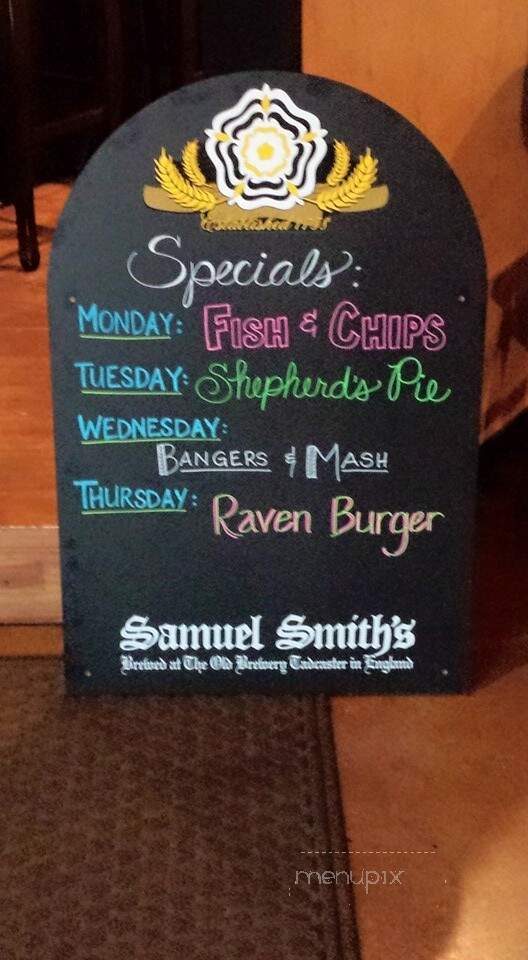 Established 1758
Specials:
MONDAY: FISH & CHIPS
TUESDAY: Shepherd's Pie
WEDNESDAY:
BANGERS & MASH
THURSDAY: Raven Burger
Samuel Smith's
Brewed at The Old Brewery Tadcaster in England
menupix